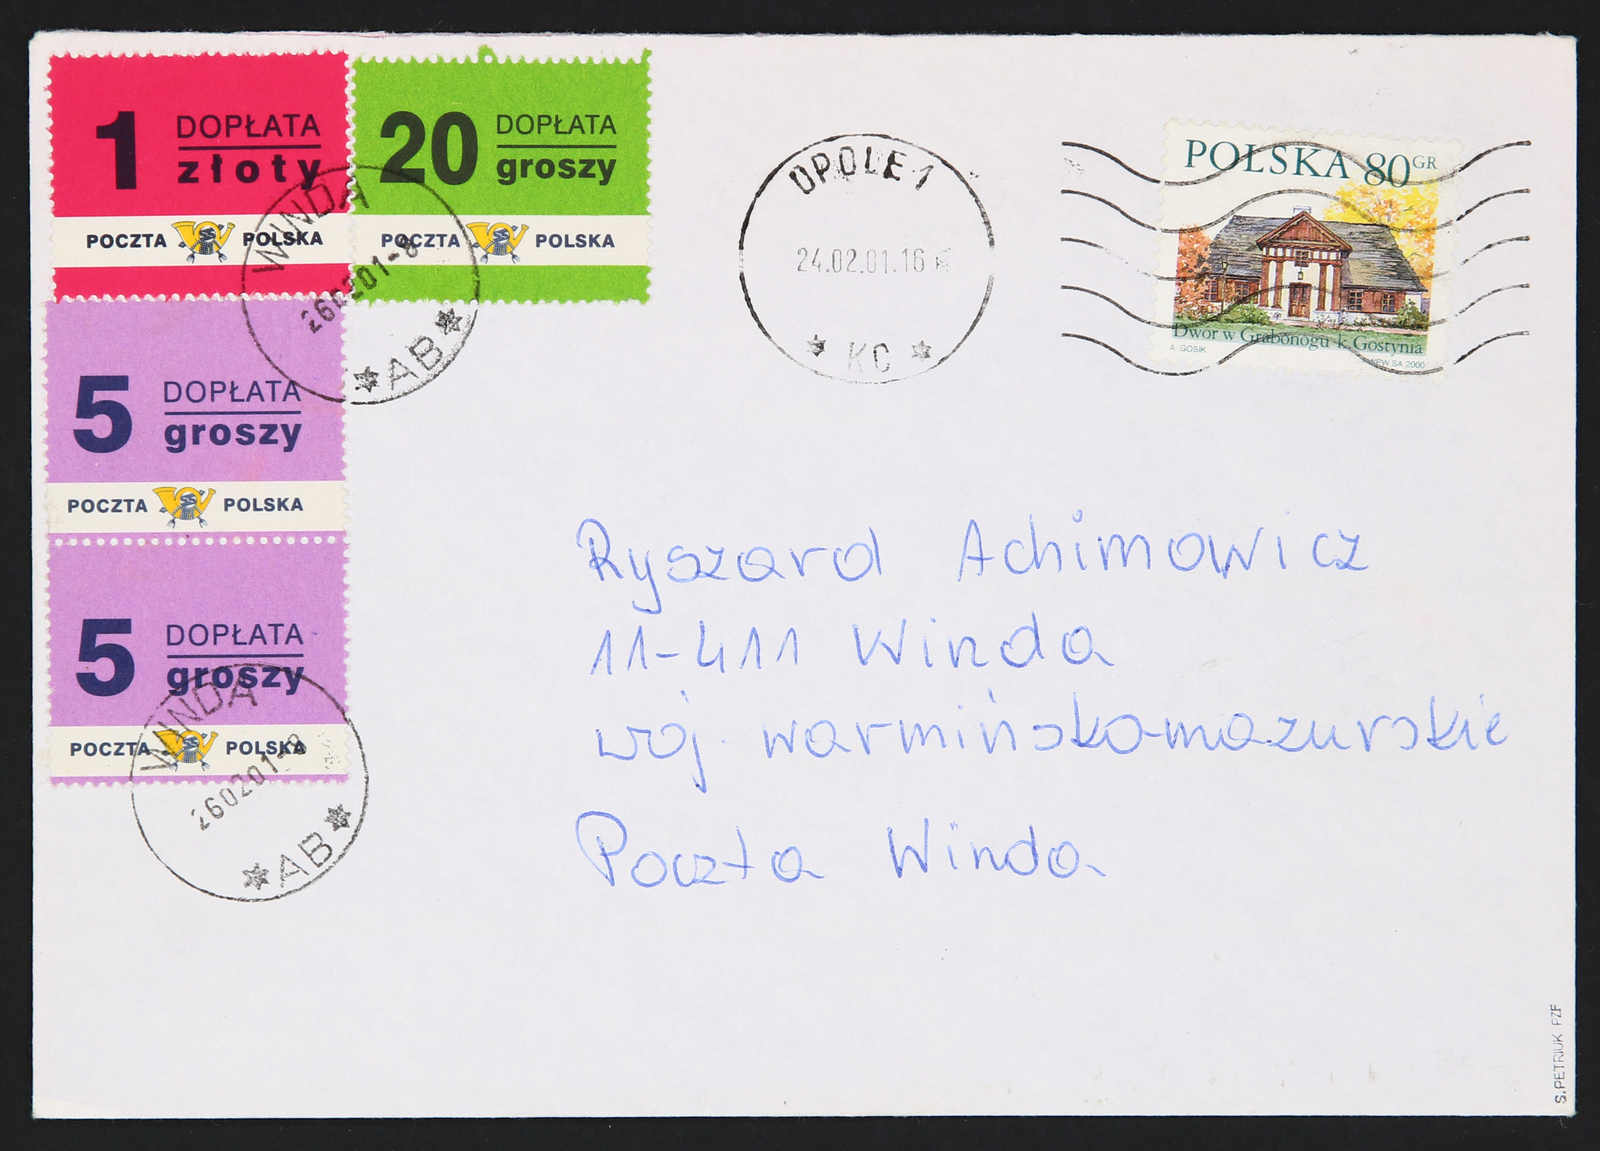 1 DOPŁATA
złoty
POCZTA POLSKA
20 DOPŁATA
groszy
POCZTA POLSKA
5 DOPŁATA
groszy
POCZTA POLSKA
5 DOPŁATA
groszy
POCZTA POLSKA
WINDA
260201-8
* AB *
WINDA
260201-8
* AB *
OPOLE 1
24.02.01.16
* KC *
POLSKA 80 GR
Dwór w Grabonogu k. Gostynia
A. GOSIK
PWPW SA 2000
Ryszard Achimowicz
11-411 Winda
woj. warmińsko-mazurskie
Poczta Winda
S.PETRIUK PZF